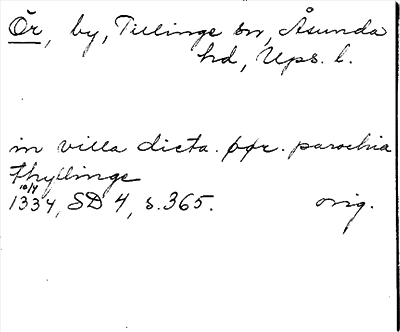 Ör, by, Tillinge sn, Åsunda
hd, Upps. l.
in villa dicta. ør. parochia
thyllinge
10/4
1334, SD 4, s. 365. orig.